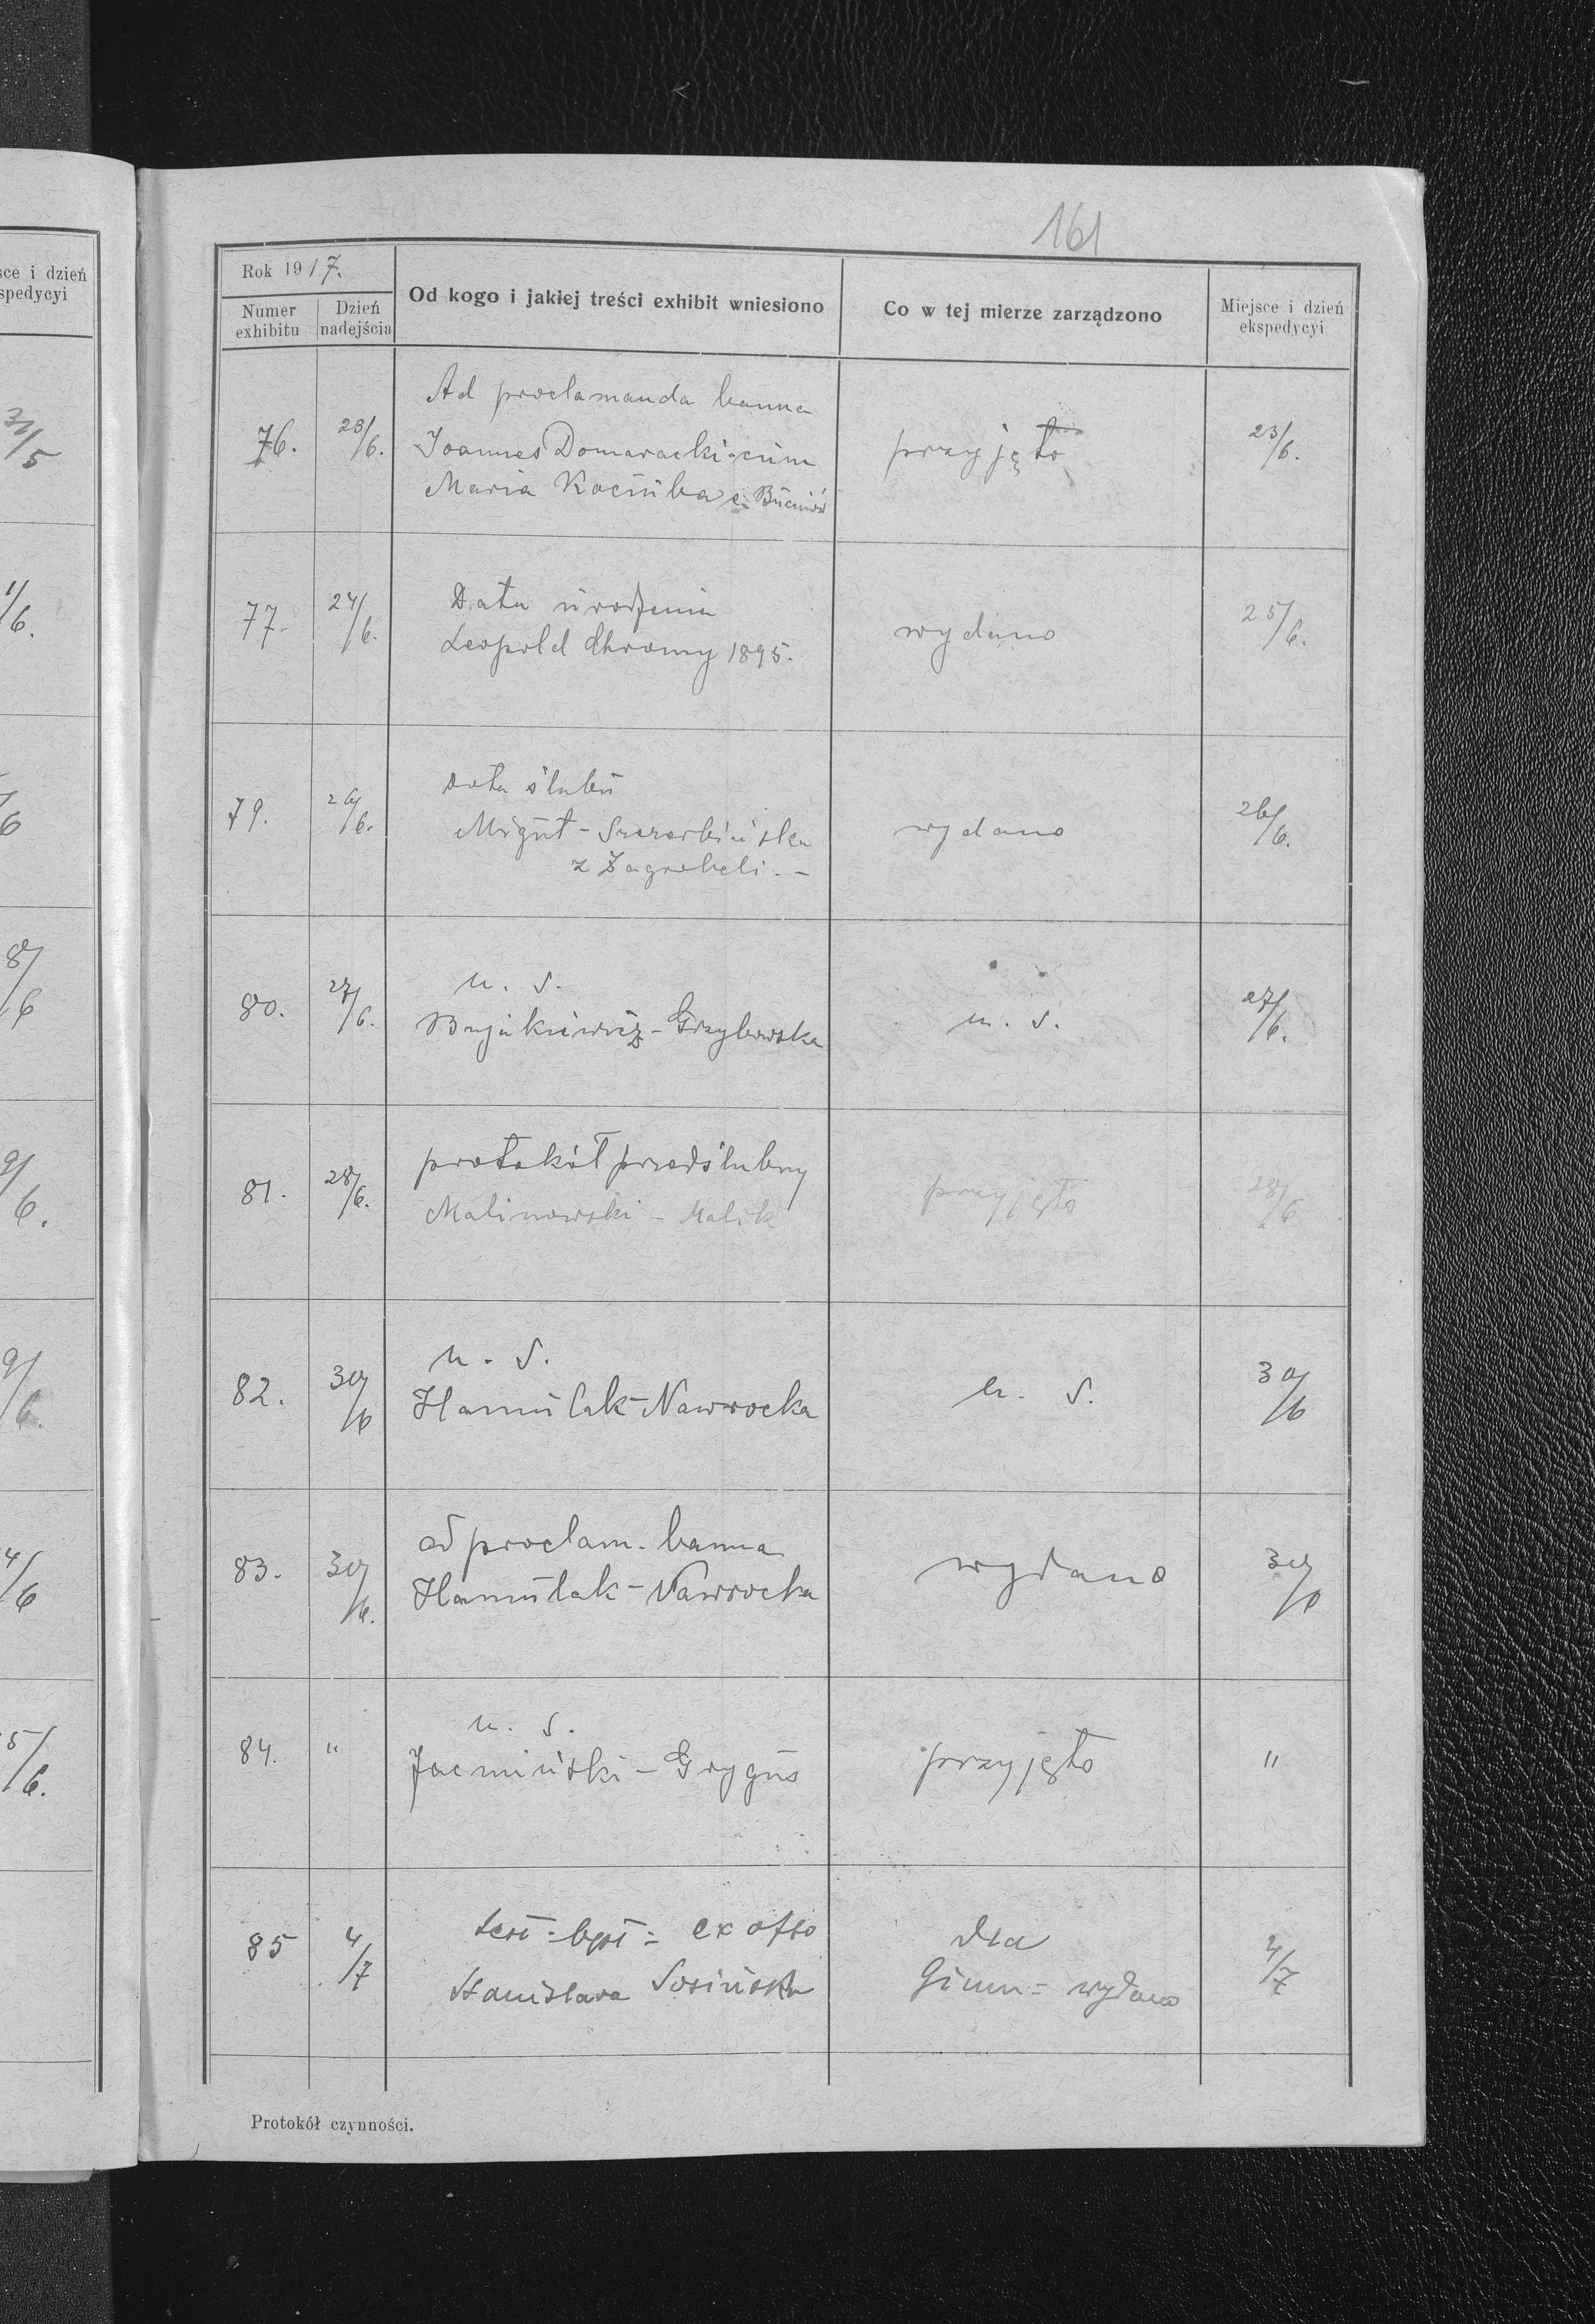 sce i dzień
spedycyi
31/5
1/6.
6
8/6
9/6.
9/6.
4/6
5/6.
161
Rok 1917.
Numer exhibitu
Dzień nadejścia
Od kogo i jakiej treści exhibit wniesiono
Co w tej mierze zarządzono
Miejsce i dzień ekspedycyi
76.
23/6.
Ad proclamanda banna
Joannes Domaracki cum
Maria Kociuba e Bucniów
przyjęto
23/6.
77.
24/6.
Data urodzenia
Leopold Chromy 1895.
wydano
25/6.
79.
26/6.
Data ślubu
Migut - Szczerbińska
z Zagrebeli. -
wydano
26/6.
80.
27/6.
u. s.
Bujukiewicz - Grzybowska
u. s.
27/6.
81.
28/6.
protokół przedślubny
Malinowski - Malik
przyjęto
28/6
82.
30/6
u. s.
Hamulak - Nawrocka
u. s.
30/6
83.
30/6.
ad proclam. banna
Hamulak - Nawrocka
wydano
30/6
84.
"
u. s.
Jacmiński - Grygus
przyjęto
"
85
4/7
test = bpt = ex offo
Stanislava Sosińska
dla
Gimn = wydano
4/7
Protokół czynności.